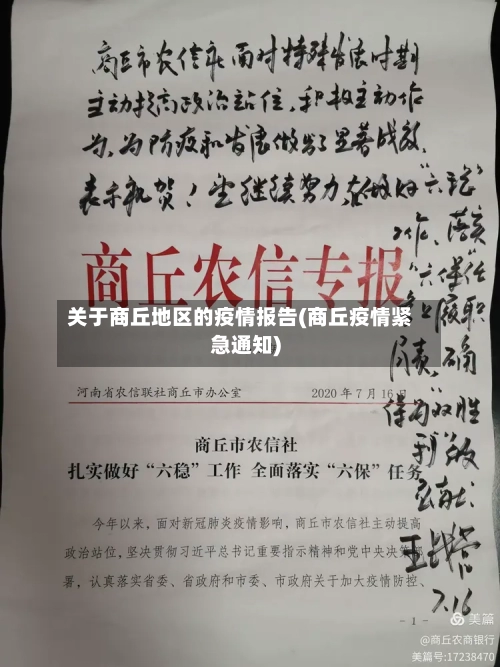 商丘市农信社面对特殊发展时期
主动提高政治站位，积极主动作
为，为防疫和发展做出了显著成效，
表示祝贺！望继续努力，在做好“六稳”
工作、落实
“六保”任
上履职
尽责，确
保
双胜
利
7.16
商丘农信专报
关于商丘地区的疫情报告(商丘疫情紧
急通知)
河南省农信联社商丘市办公室 2020年7月16日
商丘市农信社
扎实做好“六稳”工作 全面落实“六保”任务
今年以来，面对新冠肺炎疫情影响，商丘市农信社主动提高
政治站位，坚决贯彻习近平总书记重要指示精神和党中央决策部
署，认真落实省委、省政府和市委、市政府关于加大疫情防控、
- 1 -
美篇
@商丘农商银行
美篇号:17238470